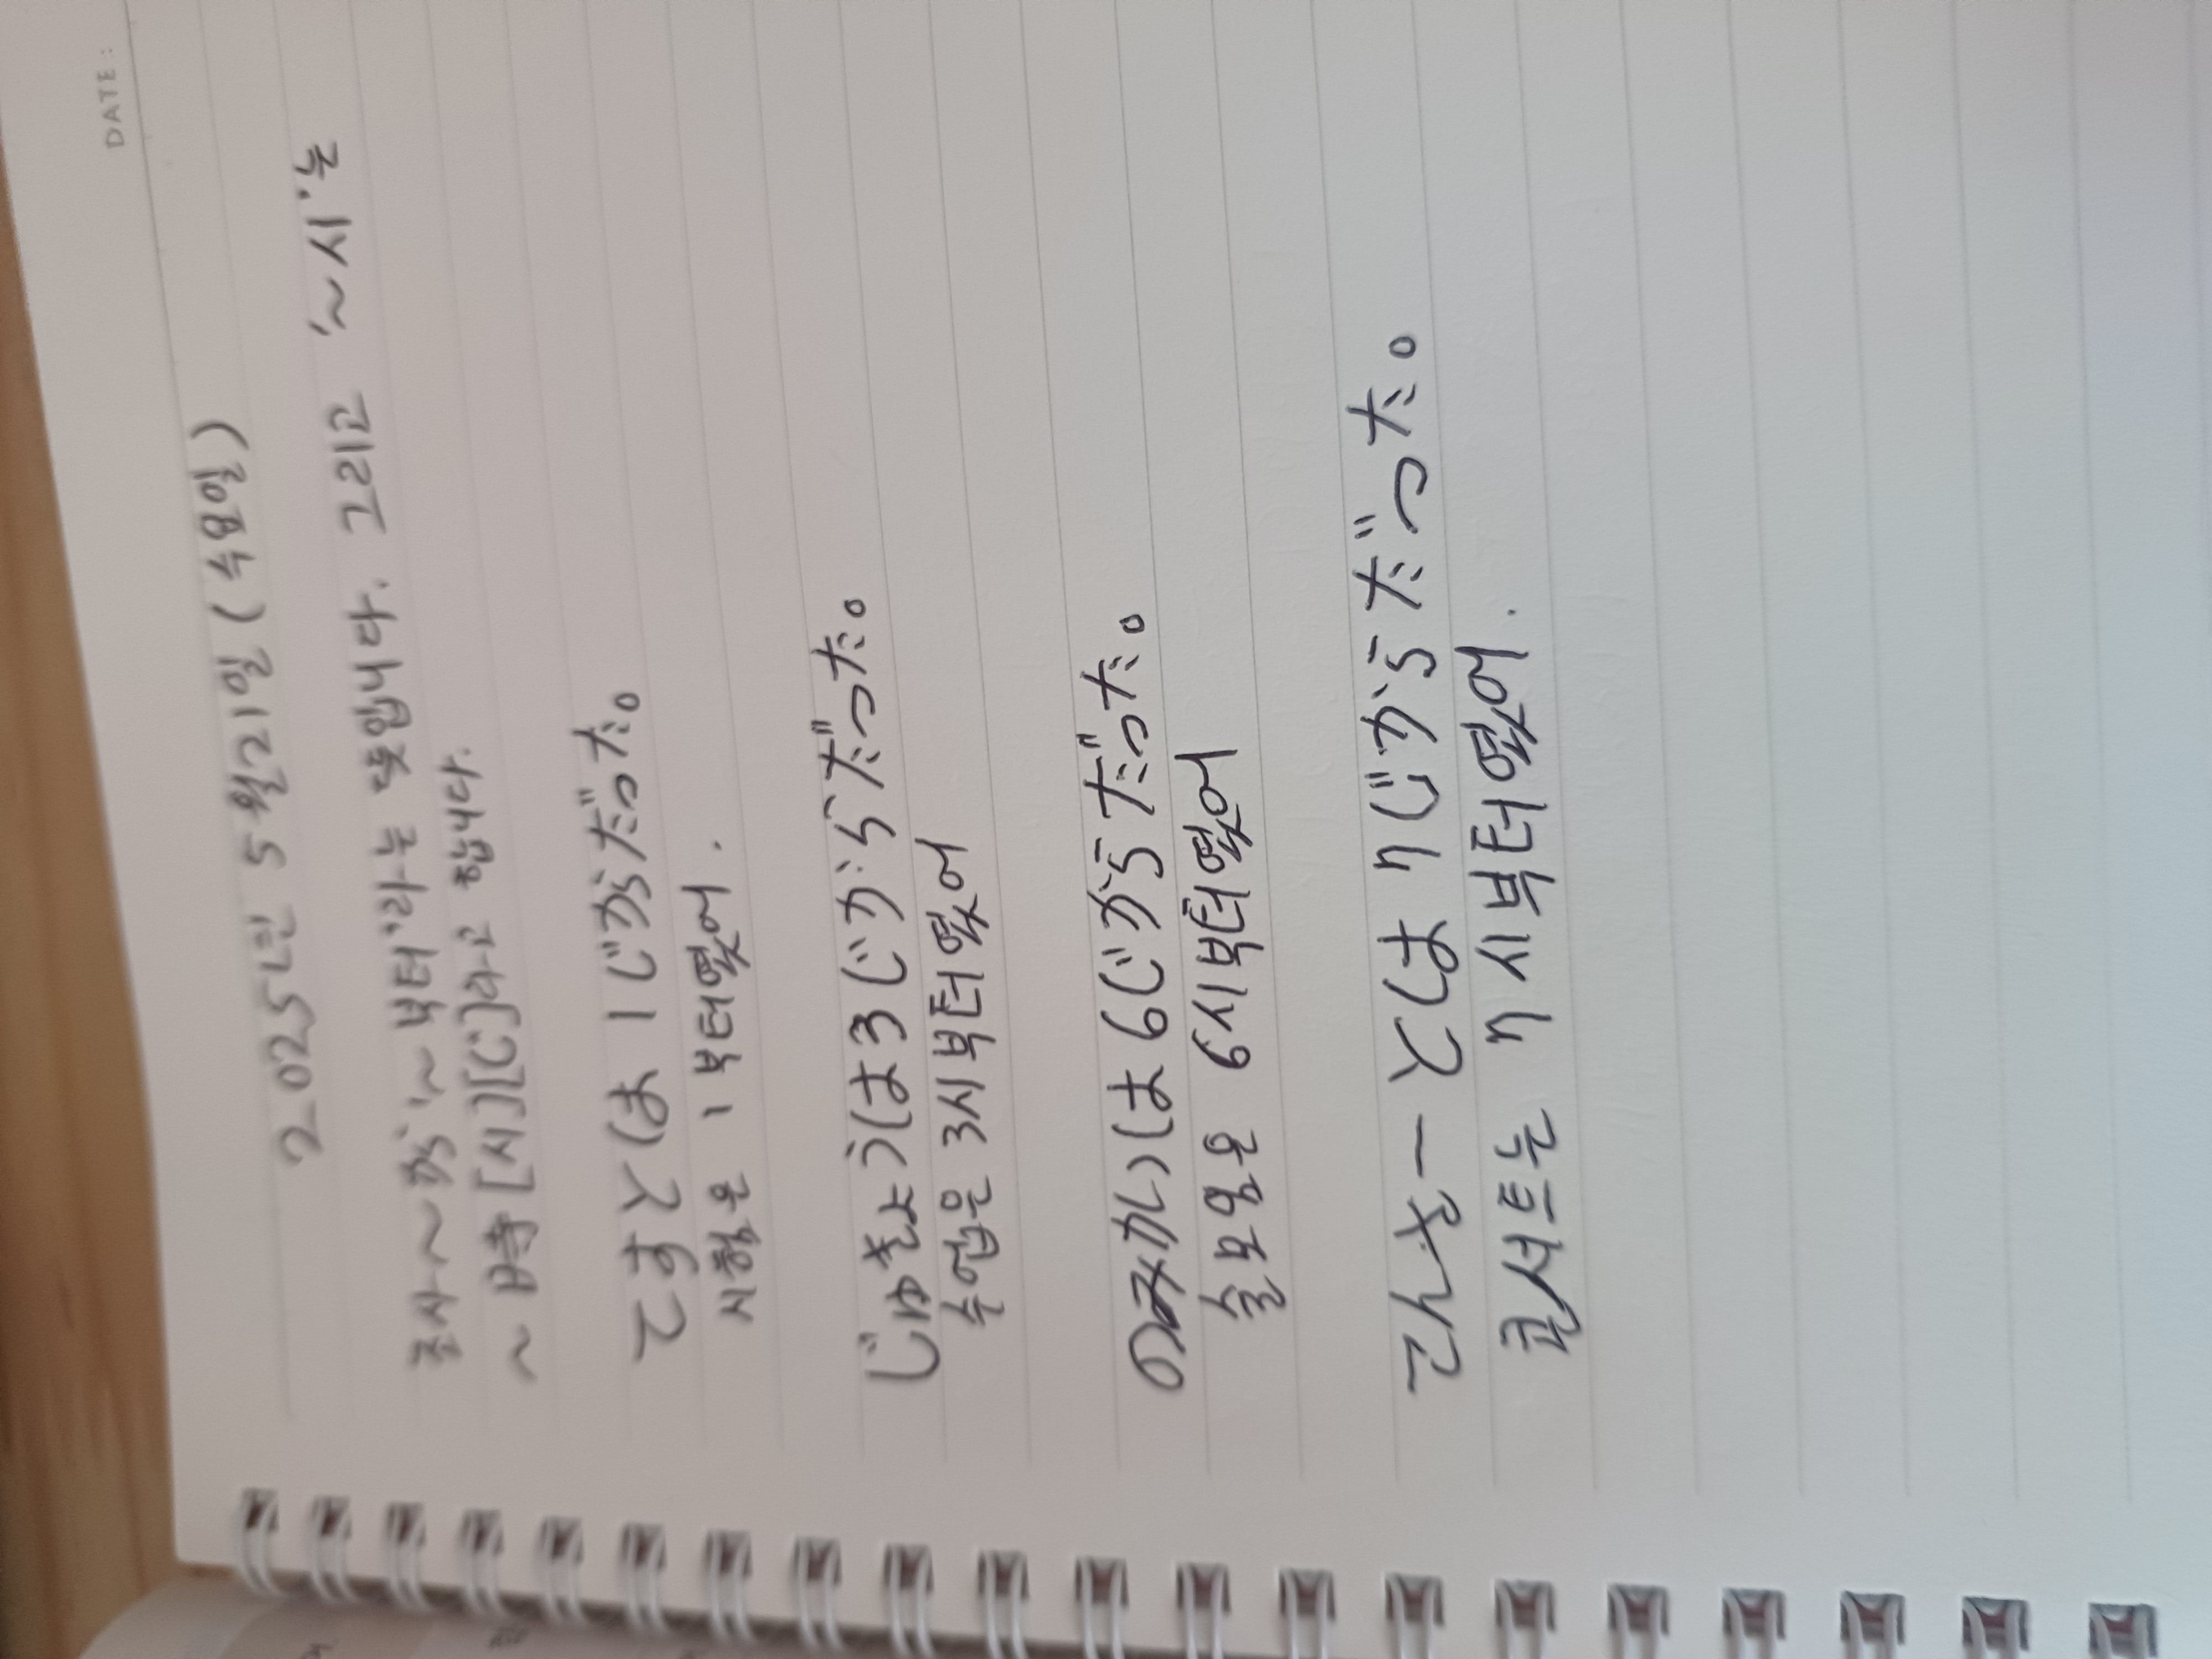 DATE:
2025년 5월21일 (수요일)
조사 ~から '~부터'라는 뜻입니다. 그리고 '~시'는
~時 [시][じ]라고 합니다.
てすとは 1じからだった。
시험은 1부터였어.
じゅぎょうは3じからだった。
수업은 3시부터였어
のみかいは6じからだった。
술모임은 6시부터였어
こんさーとは 4じからだった。
콘서트는 4시부터였어.